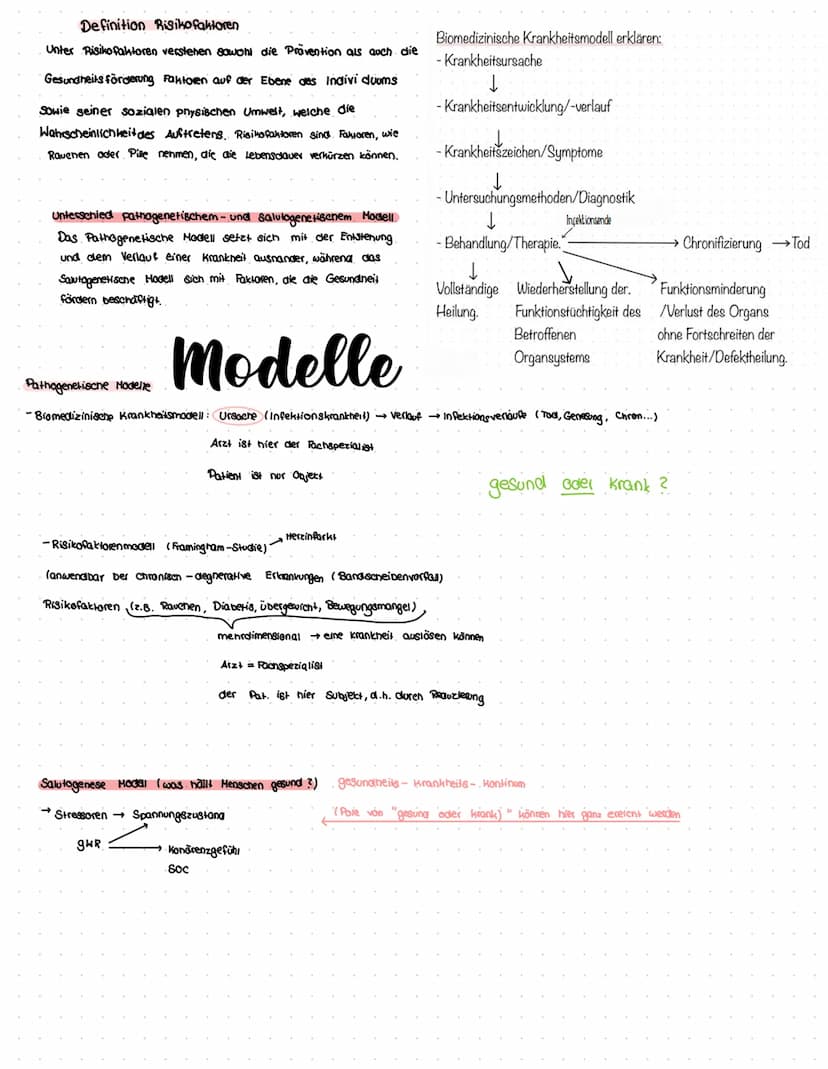 Definition Risikofaktoren
Unter Risikofaktoren verstehen sowohl die Prävention als auch die
Gesundheitsförderung Faktoen auf der Ebene des Individuums
Sowie seiner sozialen physischen Umwelt, welche die
Wahrscheinlichkeit des Auftretens. Risikofaktoren sind Faktoren, wie
Rauchen oder Pille nehmen, die die Lebensdauer verkürzen können.
Unterschied Pathogenetischem- und Salutogenetischem Modell
Das Pathogenetische Modell setzt sich mit der Entstehung
und dem Verlauf einer Krankheit ausnander, während das
Salutogenetische Modell sich mit Faktoren, die die Gesundheit
fördern beschäftigt.
Biomedizinische Krankheitsmodell erklären:
- Krankheitsursache
↓
- Krankheitsentwicklung/-verlauf
↓
- Krankheitszeichen/Symptome
↓
- Untersuchungsmethoden/Diagnostik
↓ Infektionsende
- Behandlung/Therapie. → Chronifizierung → Tod
Vollständige
Heilung.
Wiederherstellung der.
Funktionstüchtigkeit des
Betroffenen
Organsystems
Funktionsminderung
/Verlust des Organs
ohne Fortschreiten der
Krankheit/Defektheilung.
Modelle
Pathogenetische Modelle
- Biomedizinische Krankheitsmodell: Ursache (Infektionskrankheit) → Verlauf → Infektionsverläufe (Tod, Genesung, Chron...)
Arzt ist hier der Fachspezialist
Patient ist nur Object
gesund oder krank?
- Risikofaktorenmodell (Framingham-Studie) → Herzinfarkt
(anwendbar bei chronisch-degnerative Erkrankungen (Bandscheibenvorfall)
Risikofaktoren (z.B. Rauchen, Diabetis, übergewicht, Bewegungsmangel)
mehrdimensional → eine Krankheit auslösen können
Arzt = Fachspezialist
der Pat. ist hier Subject, d.h. durch
Salutogenese Modell (was hällt Menschen gesund?) gesundheits-Krankheits-Kontinum
→ Stressoren → Spannungszustand
(Pole von "gesund oder krank)" können hier ganz ereicht werden
gWR → Kohärenzgefühl
SOC